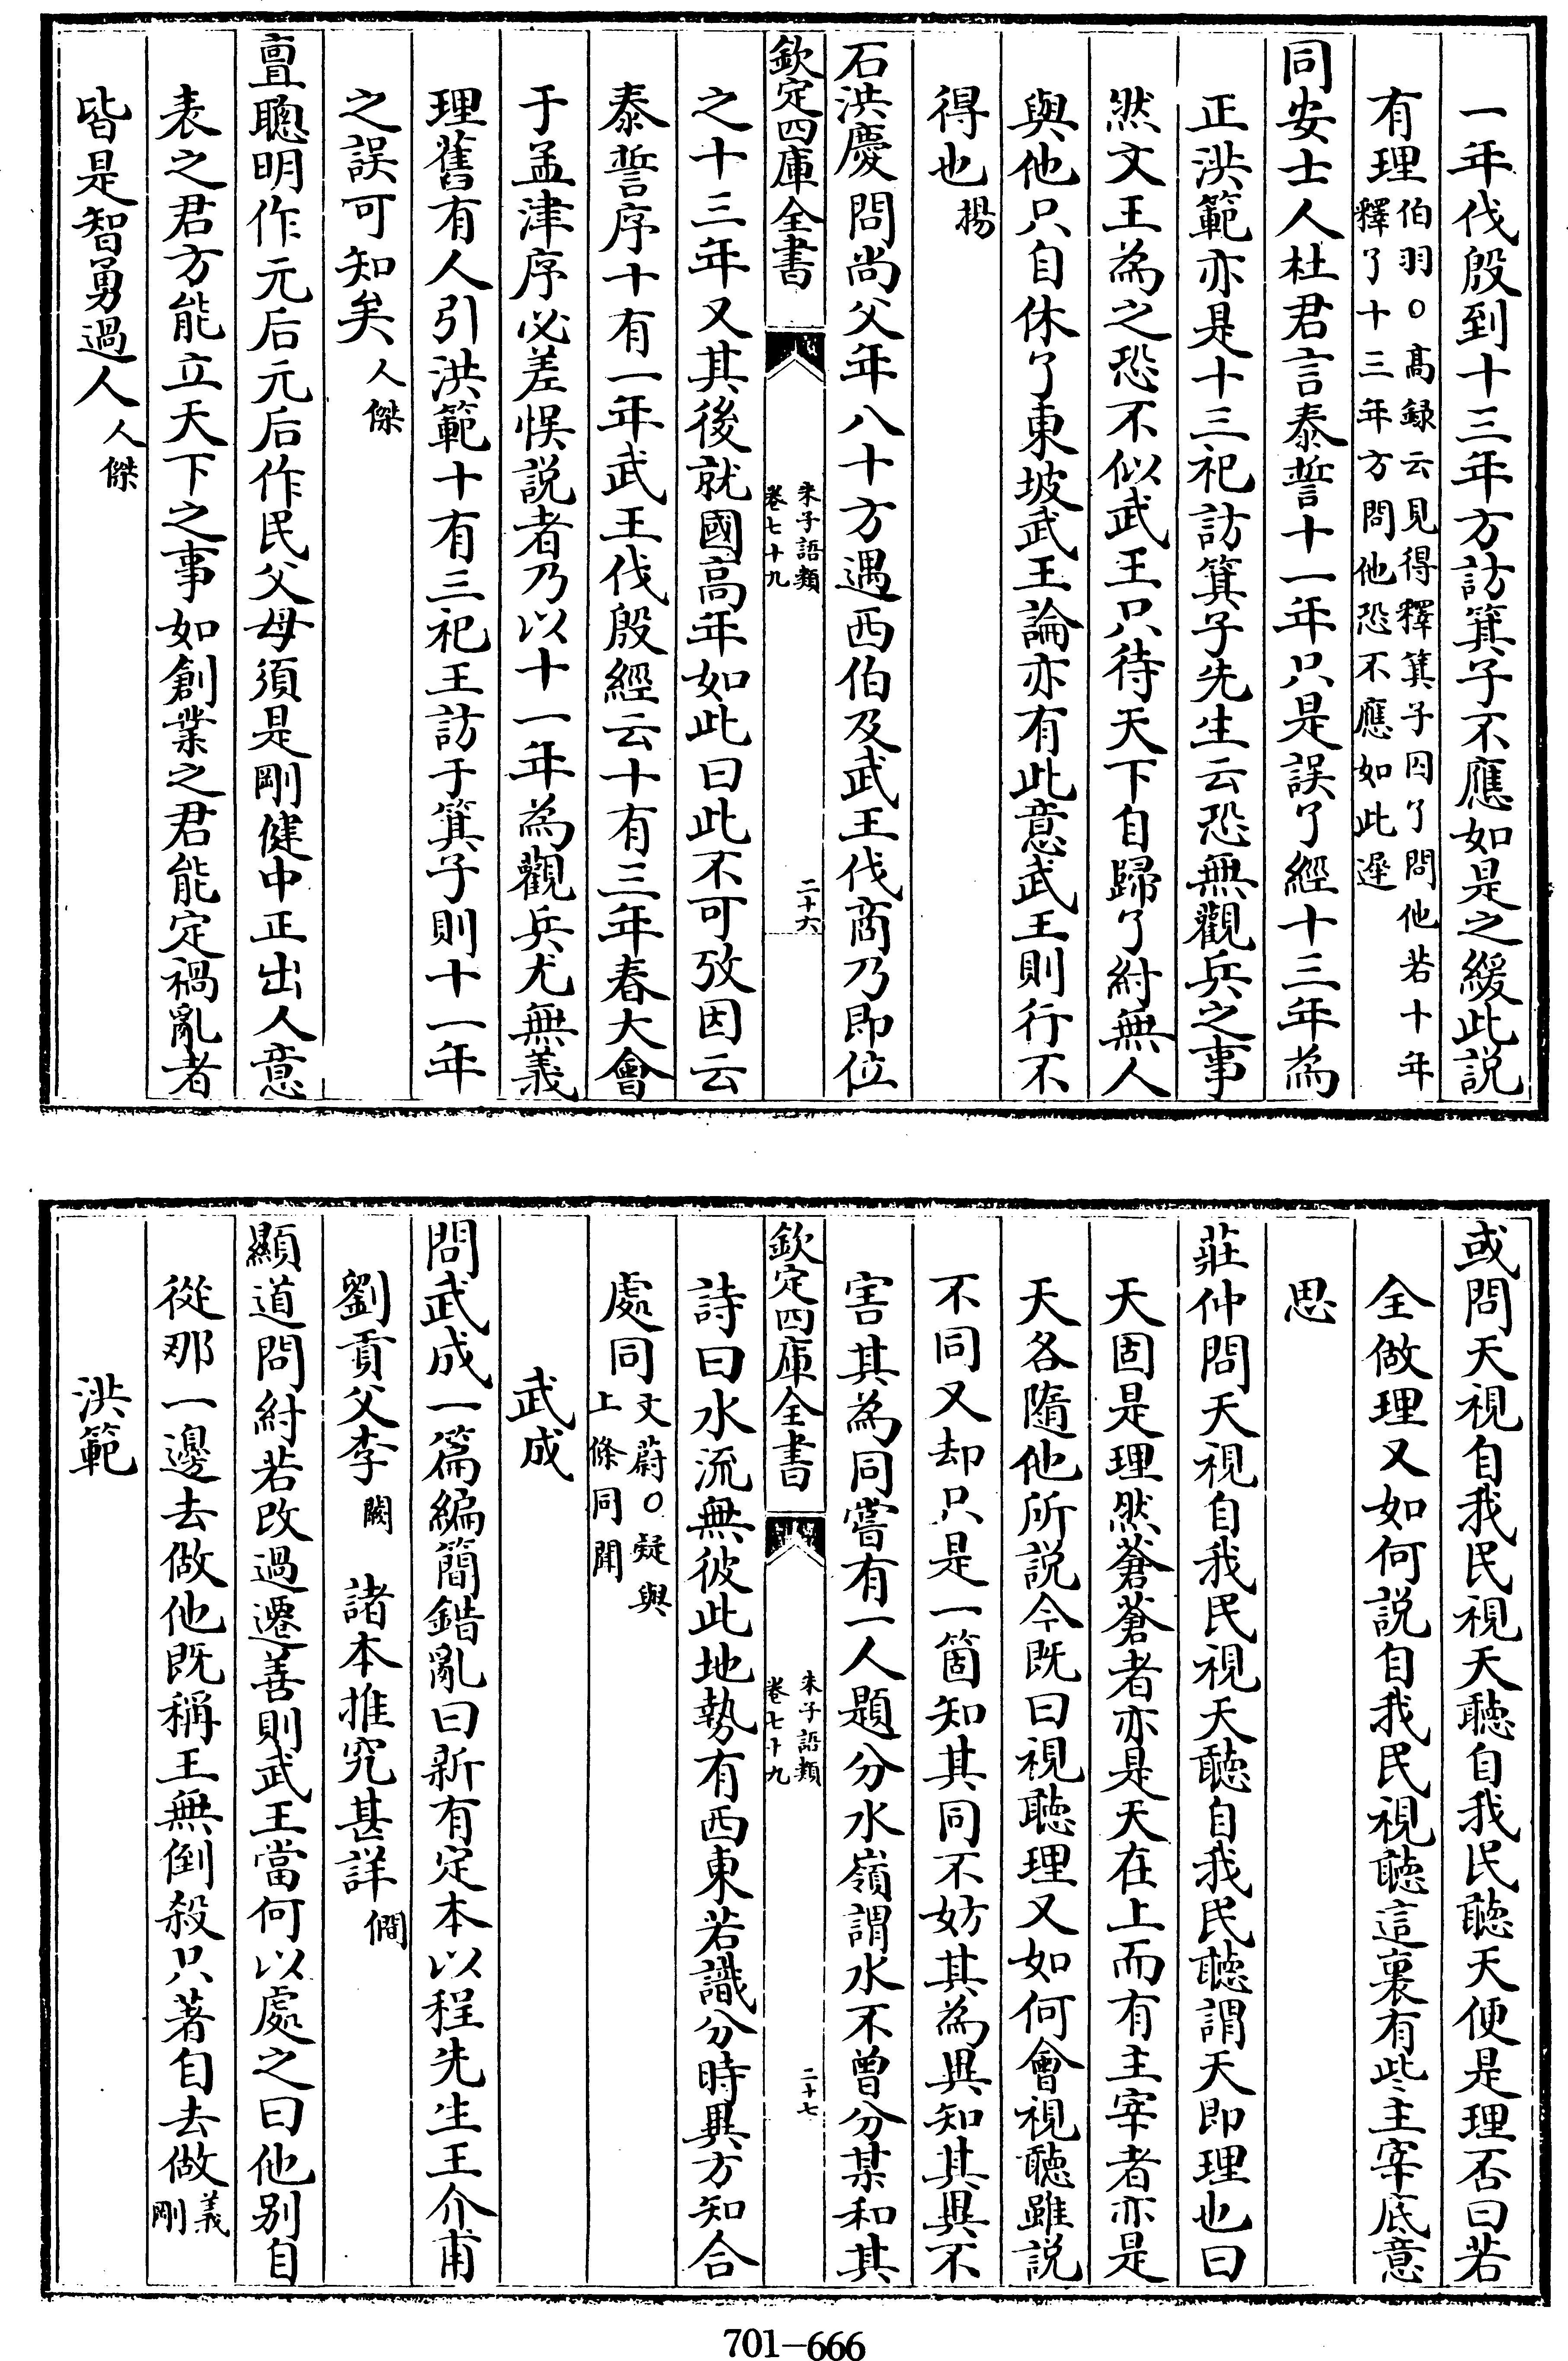 一年伐殷到十三年方訪箕子不應如是之緩此說
有理伯羽○髙録云見得釋箕子囚了問他若十年釋了十三年方問他恐不應如此遲
同安士人杜君言泰誓十一年只是誤了經十三年為
正洪範亦是十三祀訪箕子先生云恐無觀兵之事
然文王為之恐不似武王只待天下自歸了紂無人
與他只自休了東坡武王論亦有此意武王則行不
得也揚
石洪慶問尚父年八十方遇西伯及武王伐商乃即位
欽定四庫全書 朱子語類卷七十九 二十六
之十三年又其後就國高年如此曰此不可攷因云
泰誓序十有一年武王伐殷經云十有三年春大會
于孟津序必差悮説者乃以十一年為觀兵尤無義
理舊有人引洪範十有三祀王訪于箕子則十一年
之誤可知矣人傑
亶聰明作元后元后作民父母須是剛健中正出人意
表之君方能立天下之事如創業之君能定禍亂者
皆是智勇過人人傑
或問天視自我民視天聽自我民聽天便是理否曰若
全做理又如何説自我民視聽這裏有些主宰底意
思
莊仲問天視自我民視天聽自我民聽謂天即理也曰
天固是理然蒼蒼者亦是天在上而有主宰者亦是
天各隨他所説今既曰視聽理又如何會視聽雖説
不同又却只是一箇知其同不妨其為異知其異不
害其為同嘗有一人題分水嶺謂水不曽分某和其
欽定四庫全書 朱子語類卷七十九 二十七
詩曰水流無彼此地勢有西東若識分時異方知合
處同文蔚○疑與上條同聞
武成
問武成一篇編簡錯亂曰新有定本以程先生王介甫
劉貢父李闕 諸本推究甚詳僴
顯道問紂若改過遷善則武王當何以處之曰他别自
從那一邊去做他既稱王無倒殺只著自去做義剛
洪範
701—666